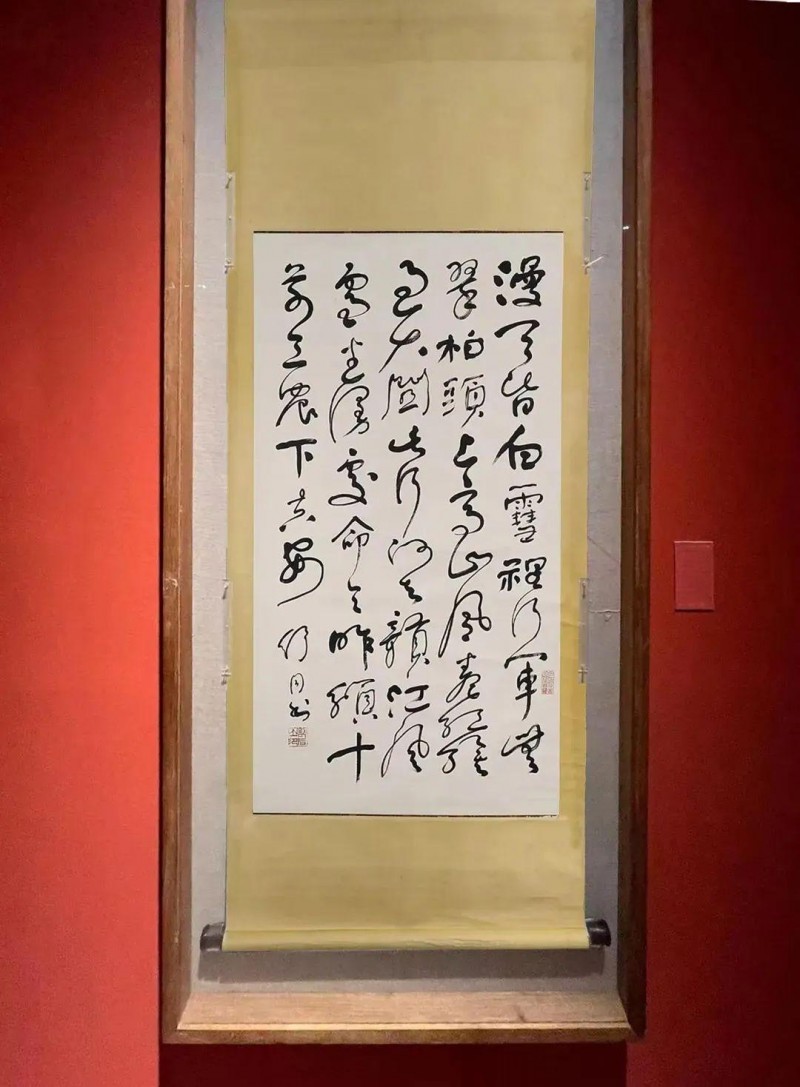 漫天皆白雪裡行軍無
翠柏頭上高山風卷紅旗
過大關此行何去贛江風
雪迷漫處命令昨頒十
萬工農下吉安